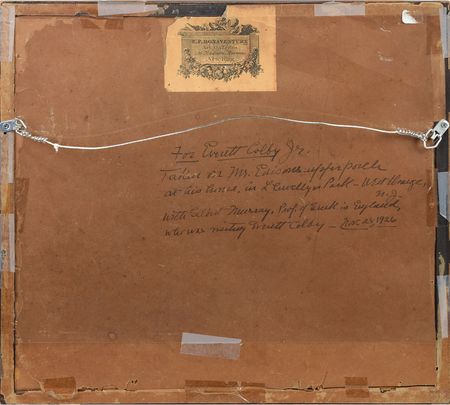 E.F. BONAVENTURE
Art Galleries
New York
For Everett Colby Jr.
Taken on Mr. Edison's upper porch
at his home, in Llewellyn Park - West Orange,
N.J.
With Gilbert Murray, Prof. of Greek in England,
who was visiting Everett Colby - Nov. 23, 1926